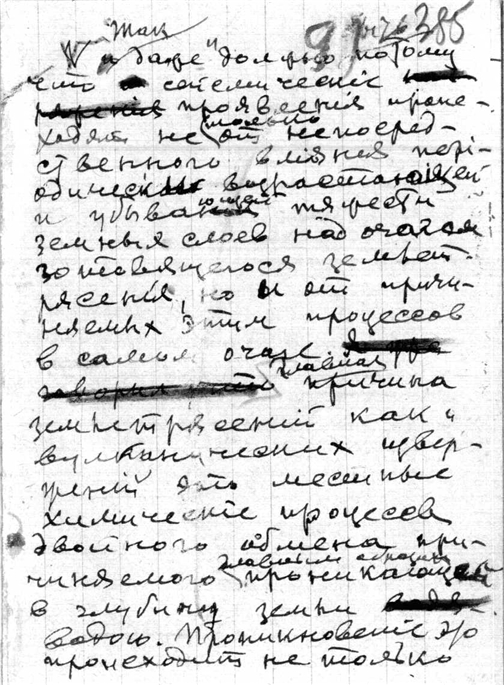 386
Так
и даже должно потому
что сейсмическія
проявленія проис-
ходят не только от непосред-
ственного вліянія пері-
одически возрастающей
и убывающей тяжести
земныя слоев над очагом
готовящегося землет-
рясенія, но и от причи-
няемых этим процессов
в самом очаге
главная причина
землетрясеній как и
вулканических извер-
женій это местные
химическіе процессы
двойного обмена при-
чиняемого главным образом проникающей
в глубину земли
водою. Проникновеніе это
происходит не только